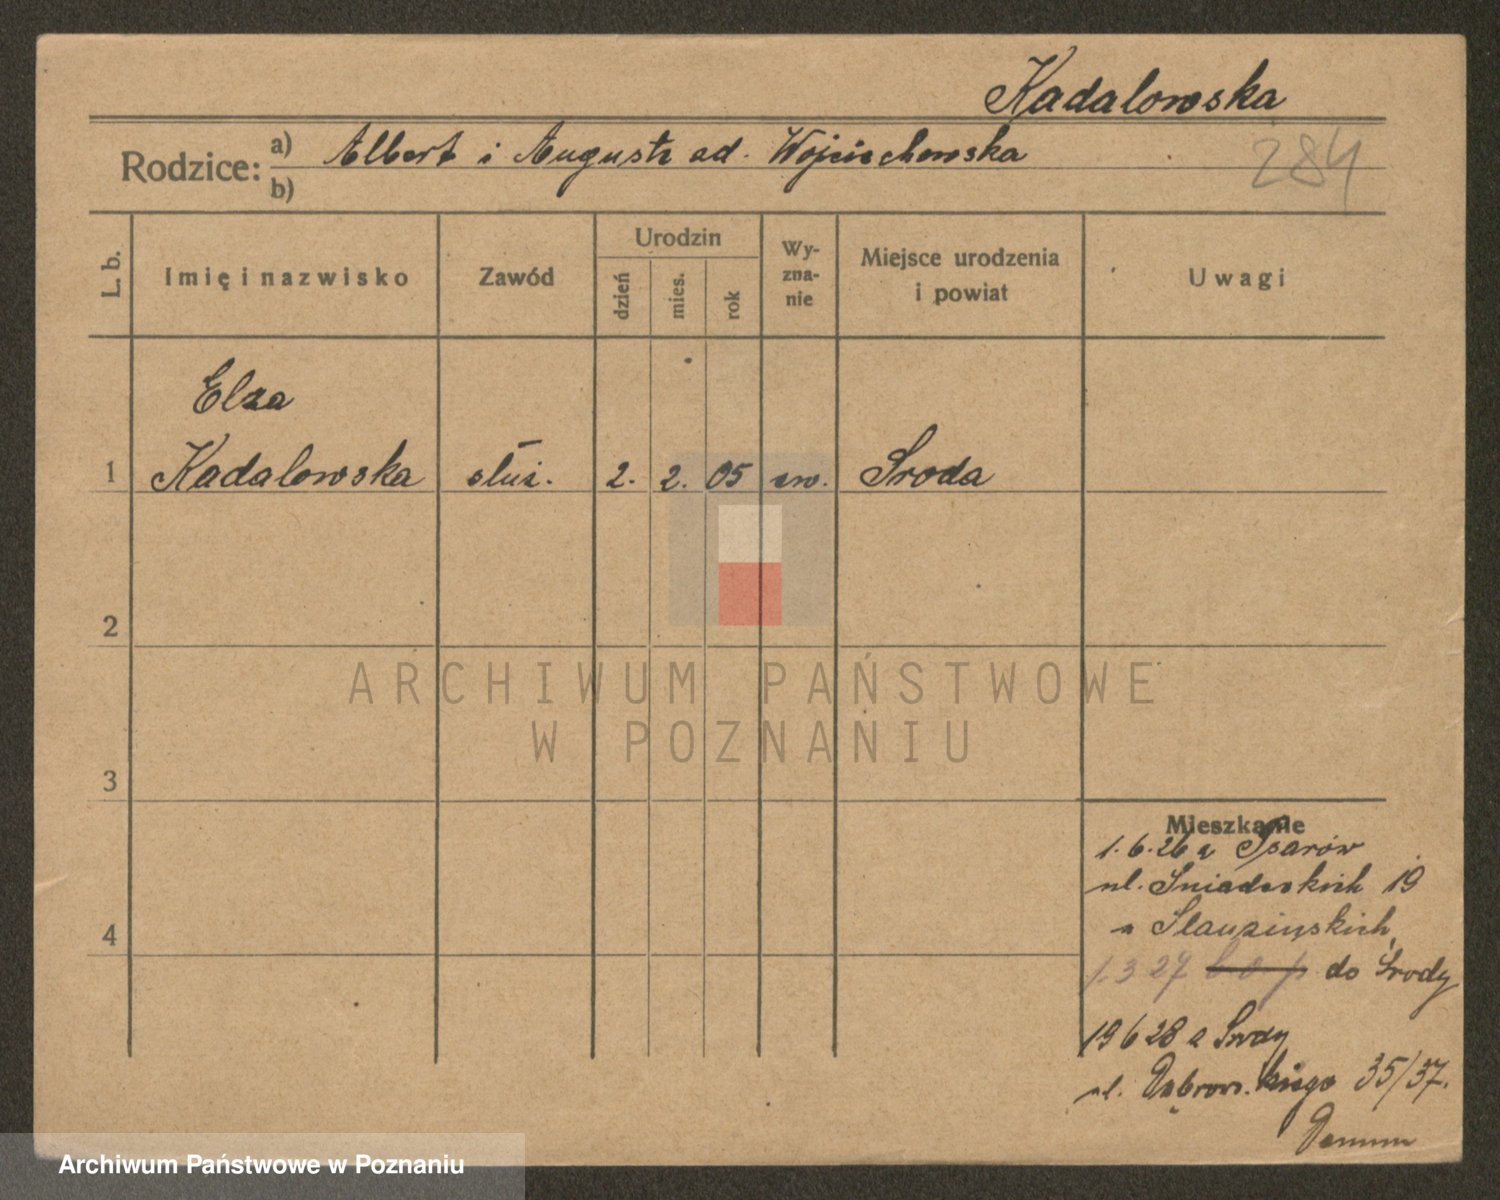 Kadalowska
284
Rodzice: a) Albert i Augusta ad. Wojciechowska
b)
L. b.
Imię i nazwisko
Zawód
Urodzin
dzień
mies.
rok
Wy-
zna-
nie
Miejsce urodzenia
i powiat
Uwagi
Elza
1 Kadalowska służ. 2. 2. 05 ew. Sroda
2
3
4
Mieszkanie
1.6.26 z
ul. Sniadeckich 19
1.3 27 b o p do Srody
19 6 28 z Srody
ul. Dąbrowskiego 35/37.
ARCHIWUM PAŃSTWOWE
W POZNANIU
Archiwum Państwowe w Poznaniu